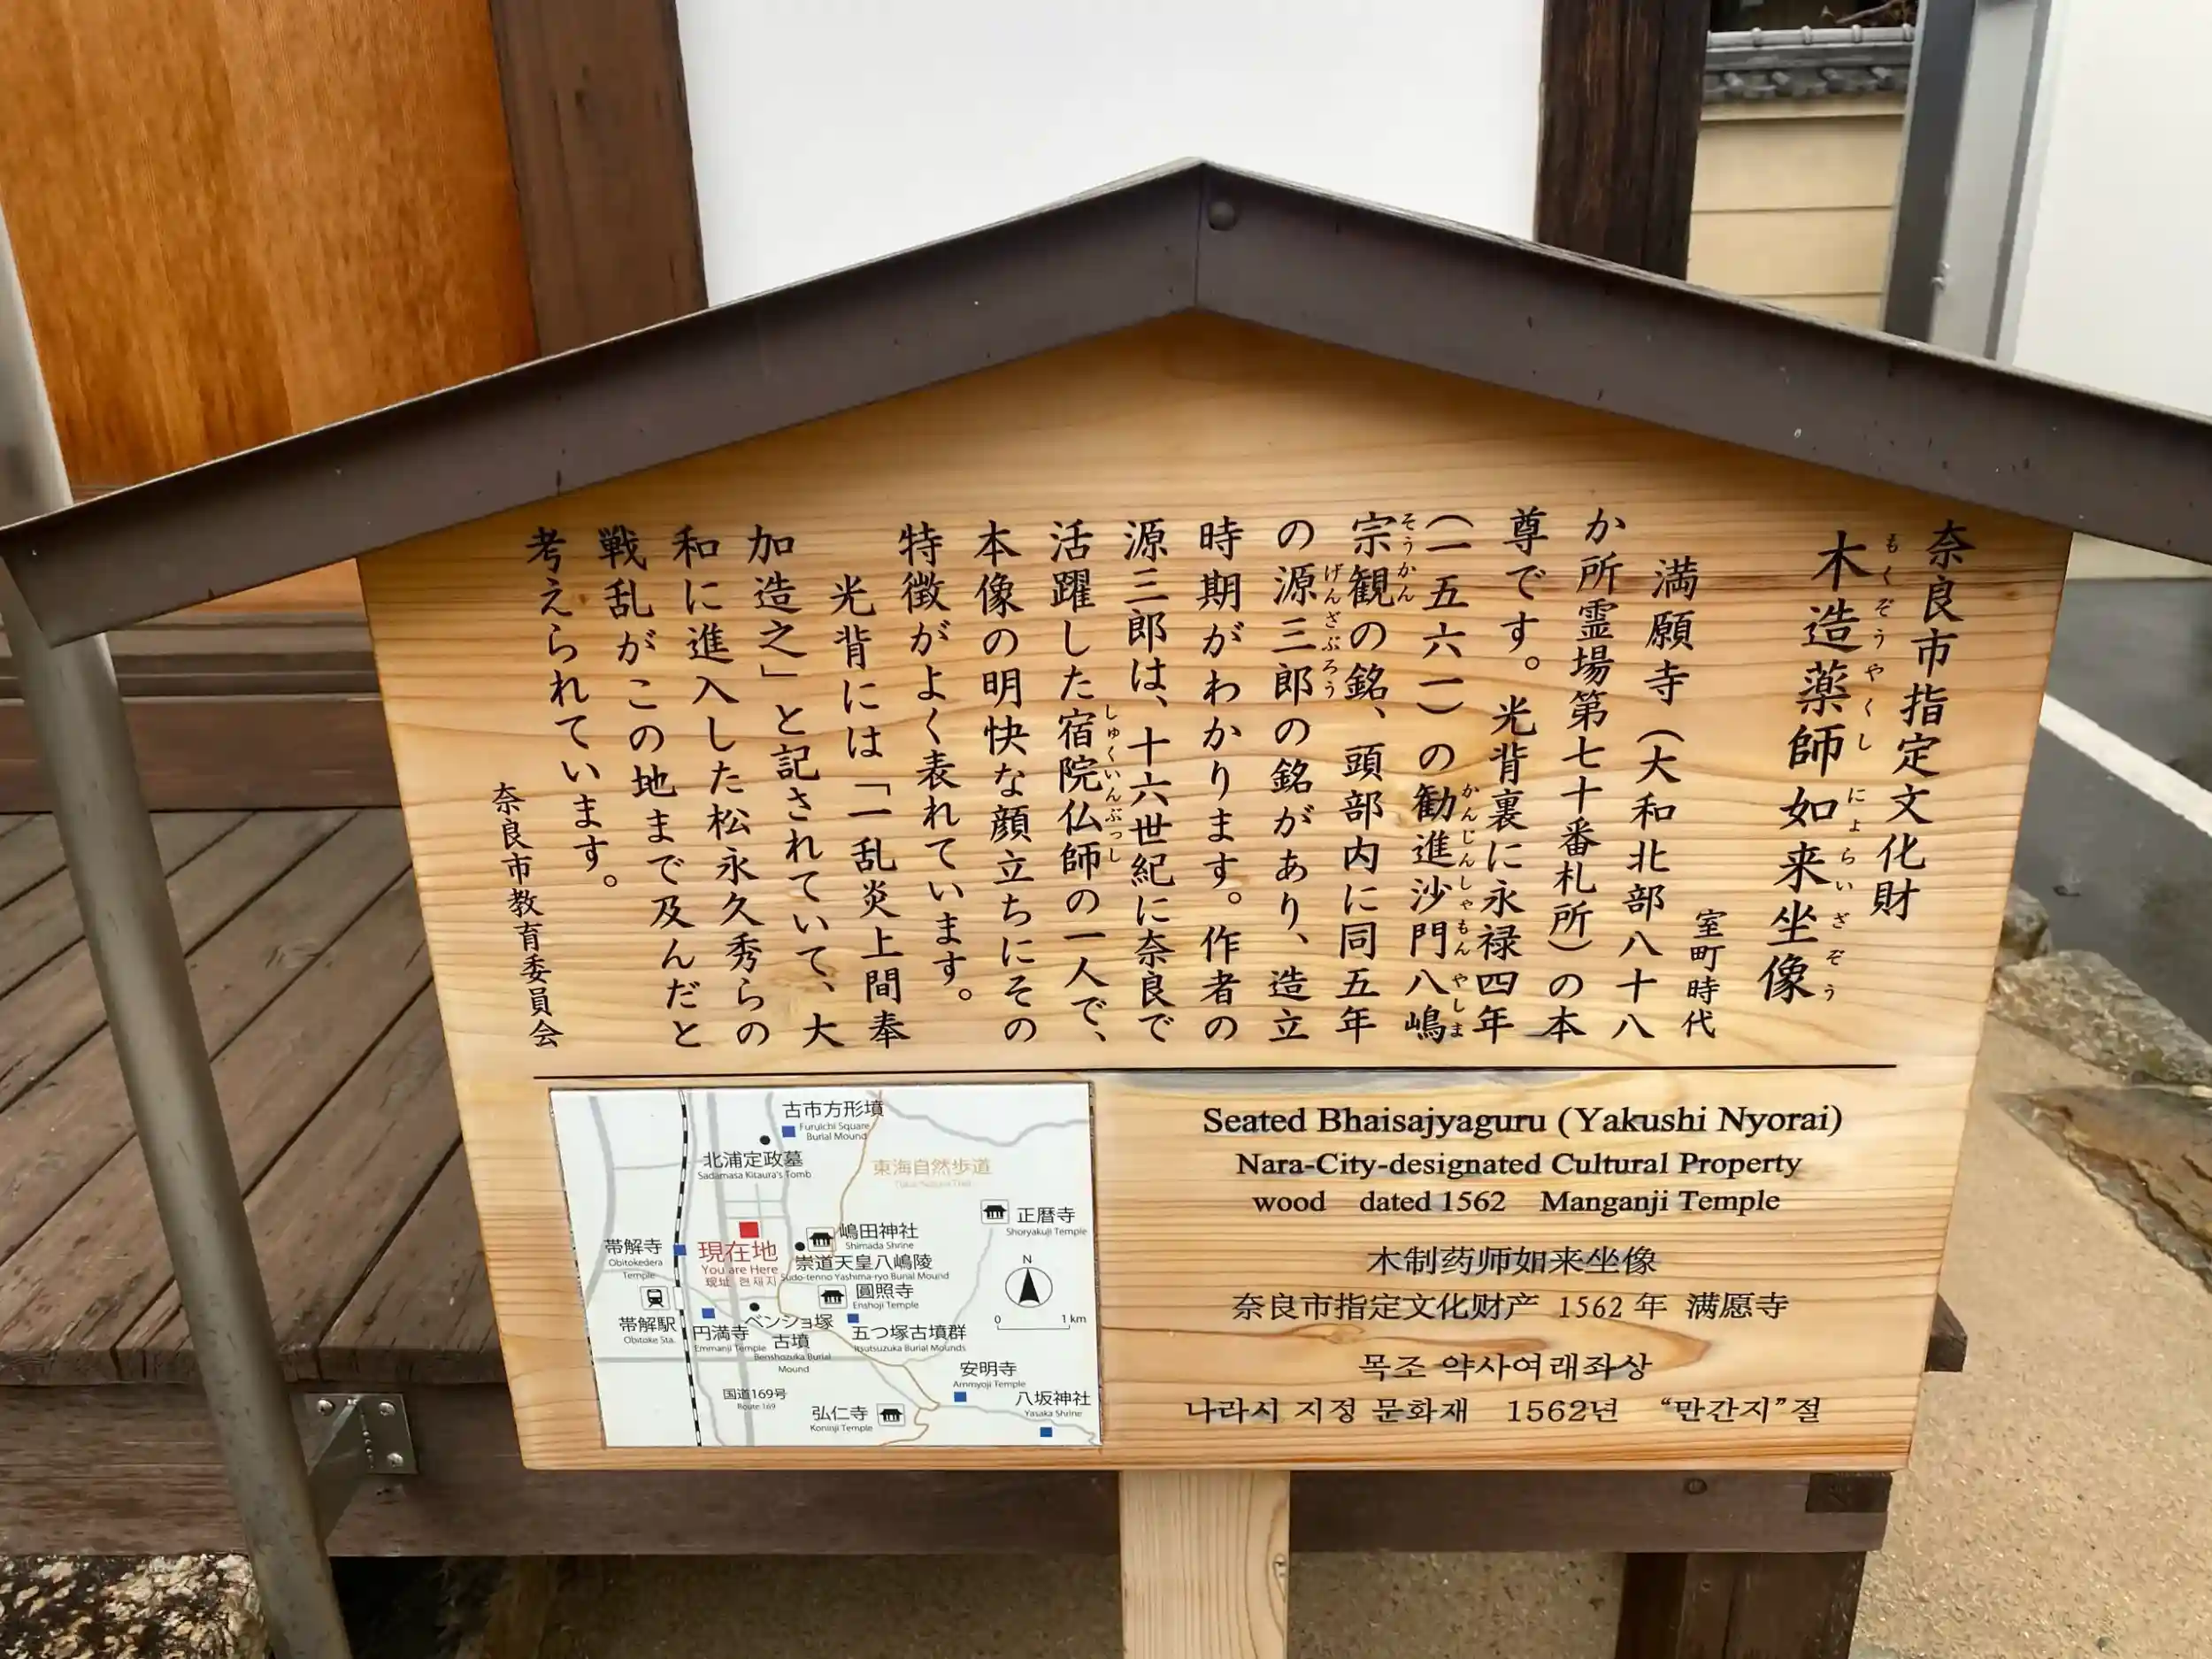 奈良市指定文化財
木造薬師如来坐像
もくぞうやくしにょらいざぞう
室町時代
満願寺（大和北部八十八
か所霊場第七十番札所）の本
尊です。光背裏に永禄四年
（一五六一）の勧進沙門八嶋
かんじんしゃもんやしま
宗観の銘、頭部内に同五年
そうかん
の源三郎の銘があり、造立
げんざぶろう
時期がわかります。作者の
源三郎は、十六世紀に奈良で
活躍した宿院仏師の一人で、
しゅくいんぶっし
本像の明快な顔立ちにその
特徴がよく表れています。
光背には「一乱炎上間奉
加造之」と記されていて、大
和に進入した松永久秀らの
戦乱がこの地まで及んだと
考えられています。
奈良市教育委員会
古市方形墳
Furuichi Square
Burial Mound
北浦定政墓
Sadamasa Kitaura's Tomb
東海自然歩道
正暦寺
Shoryakuji Temple
嶋田神社
Shimada Shrine
帯解寺
Obitokedera
Temple
現在地
You are Here
现址 현재지
崇道天皇八嶋陵
Sudo-tenno Yashima-ryo Burial Mound
圓照寺
Enshoji Temple
N
0 1 km
帯解駅
Obitoke Sta.
円満寺
Emmanji Temple
ベンショ塚
古墳
Benshozuka Burial
Mound
五つ塚古墳群
Itsutsuzuka Burial Mounds
安明寺
Ammyoji Temple
国道169号
Route 169
弘仁寺
Koninji Temple
八坂神社
Yasaka Shrine
Seated Bhaisajyaguru (Yakushi Nyorai)
Nara-City-designated Cultural Property
wood dated 1562 Manganji Temple
木制药师如来坐像
奈良市指定文化财产 1562 年 满愿寺
목조 약사여래좌상
나라시 지정 문화재 1562년 “만간지”절